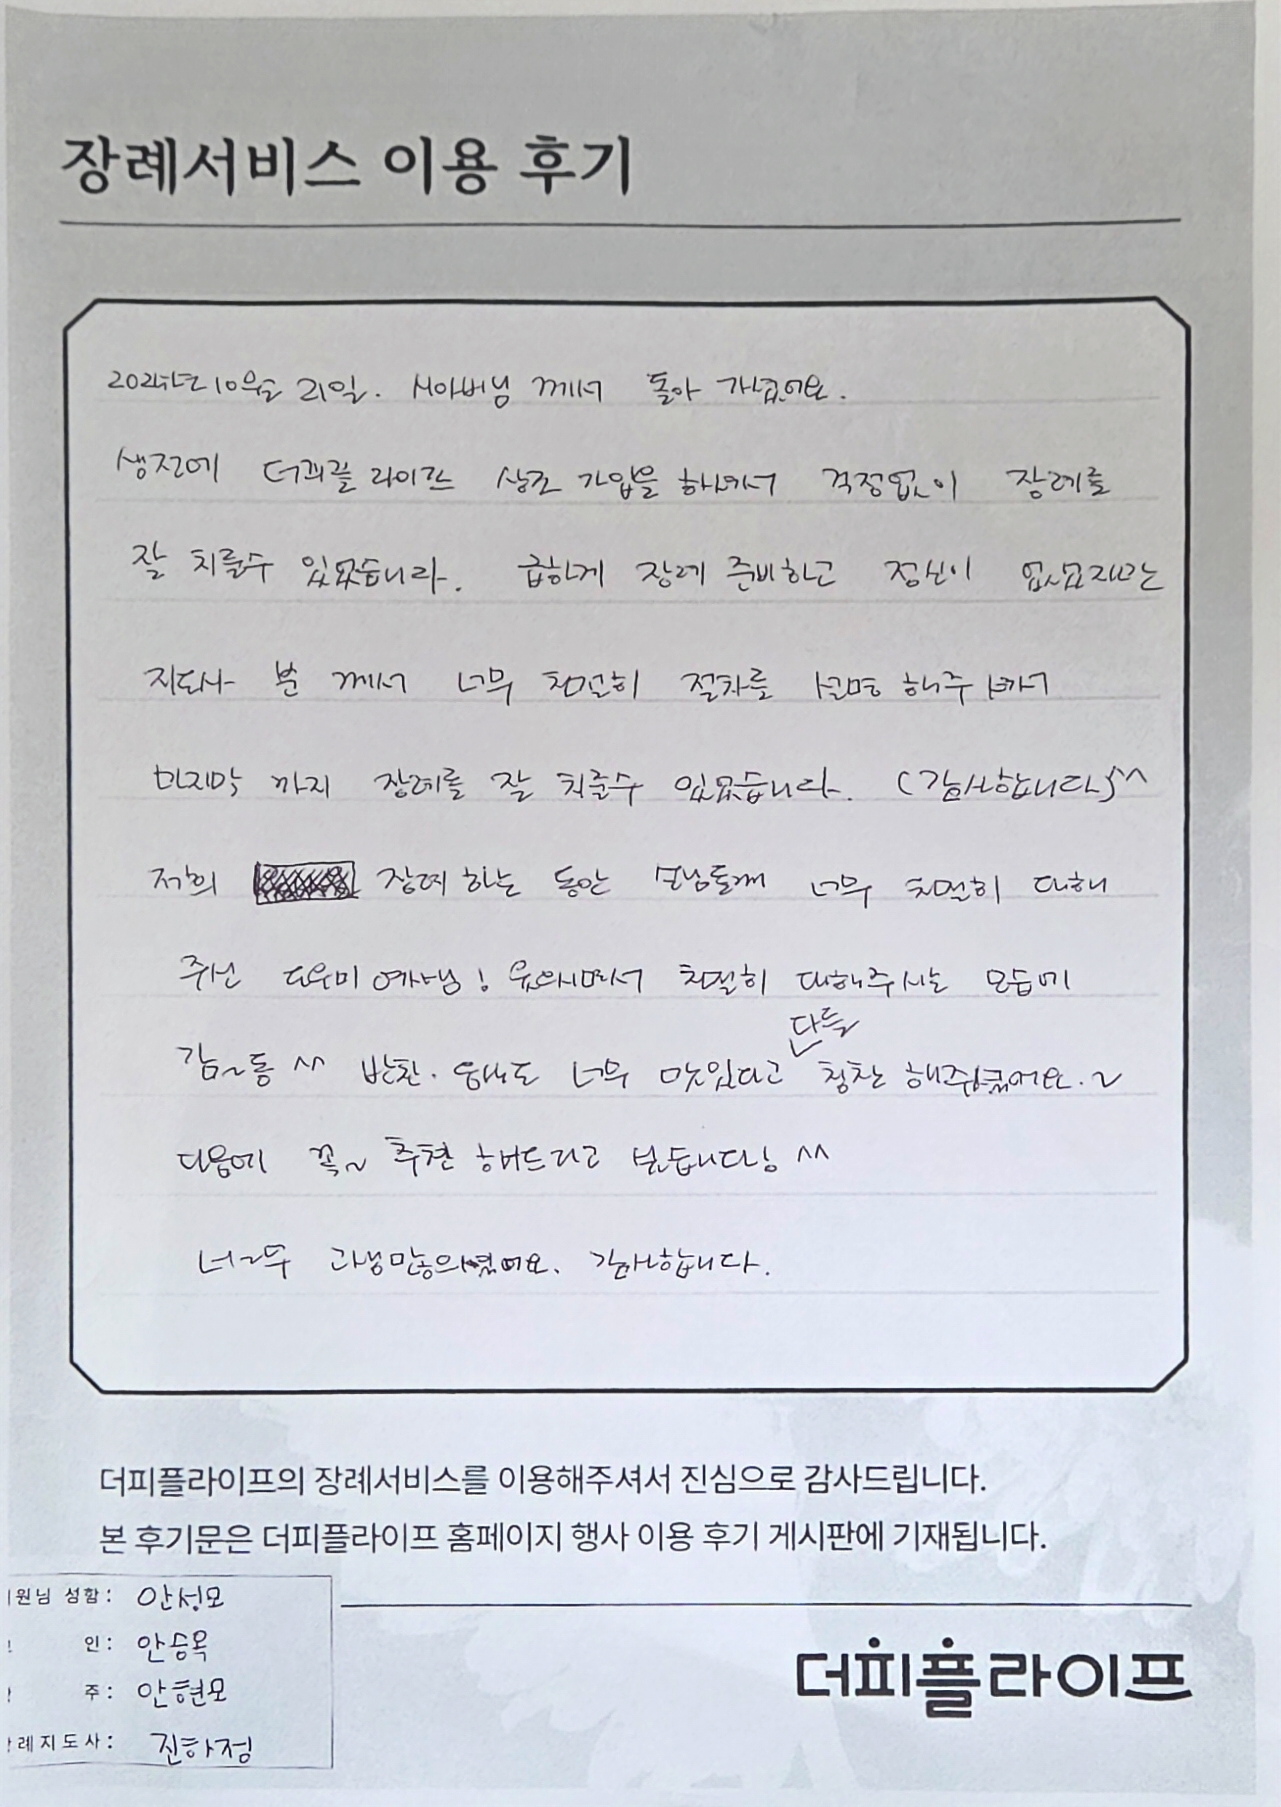 장례서비스 이용 후기
2024년 10월 21일. 시아버님 께서 돌아 가셨어요.
생전에 더피플 라이프 상조 가입을 하셔서 걱정없이 장례를
잘 치를수 있었습니다. 급하게 장례 준비하고 정신이 없었지만
지도사 분 께서 너무 친절히 절차를 설명 해주셔서
마지막 까지 장례를 잘 치를수 있었습니다. (감사합니다)^^
저희 장례 하는 동안 손님들께 너무 친절히 대해
주신 도우미 여사님! 웃으시면서 친절히 대해주시는 모습에
감~동 ^^ 반찬. 음식도 너무 맛있다고 다들 칭찬 해주셨어요.~
다음에 꼭~ 추천 해드리고 싶습니다 ^^
너~무 고생많으셨어요. 감사합니다.
더피플라이프의 장례서비스를 이용해주셔서 진심으로 감사드립니다.
본 후기문은 더피플라이프 홈페이지 행사 이용 후기 게시판에 기재됩니다.
원님 성함: 안성모
인: 안승옥
주: 안현모
례지도사: 진하정
더피플라이프